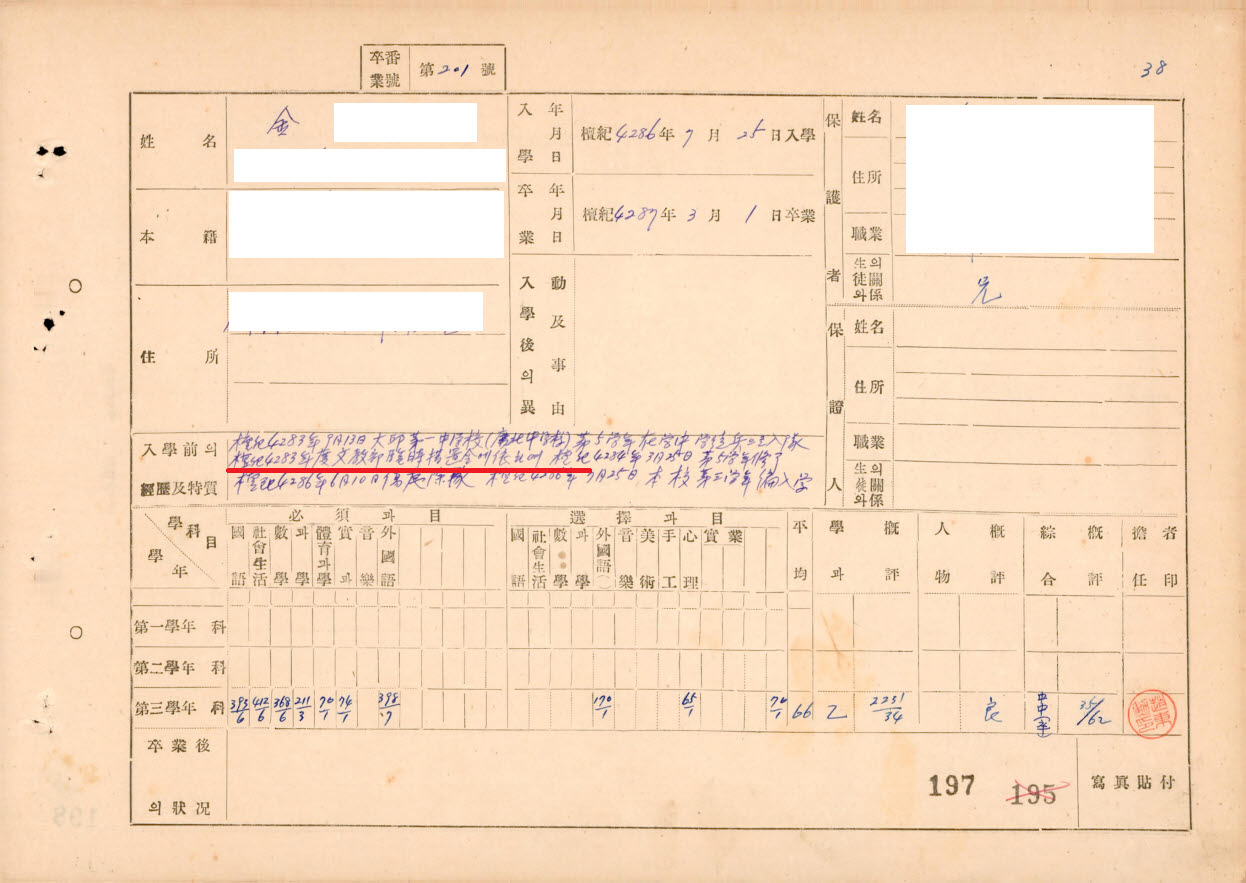 卒業 番號 第201號
38
姓名 金
本籍
住所
入學 年月日 檀紀4286年 7月 25日 入學
卒業 年月日 檀紀4287年 3月 1日 卒業
入學後의 異動及事由
保護者
姓名
住所
職業
生徒와의 關係 兄
保證人
姓名
住所
職業
生徒와의 關係
入學前의 經歷及特質
檀紀4283年9月13日 大邱第一中学校 第5学年在学中 学徒兵으로入隊
檀紀4283年度文教部臨時措置令에依하여 檀紀4284年3月25日 第5学年修了
檀紀4286年6月10日 除隊 檀紀4286年7月25日 本校 第三学年編入学
學科目 學年
必須과目
國語 社會生活 數學 과學 體育과學 實과 音樂 外國語
選擇과目
國語 社會生活 數學 과學 外國語( ) 音樂 美術 手工 心理 實業
平均 學과概評 人物概評 綜合概評 擔任者印
第一學年科
第二學年科
第三學年科 393/6 412/6 368/6 211/3 70/1 74/1 398/7 170/1 65/1 70/1 66 乙 2231/34 良 35/62
卒業後의狀況
197 195
寫眞貼付